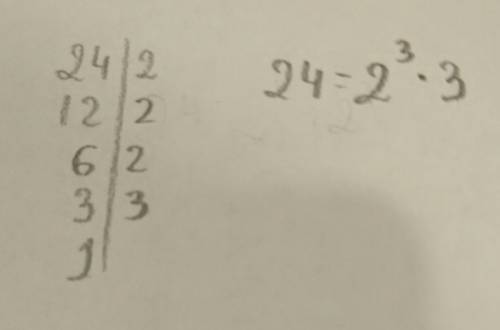 24 | 2
12 | 2
6 | 2
3 | 3
1 |
24 = 2³ · 3